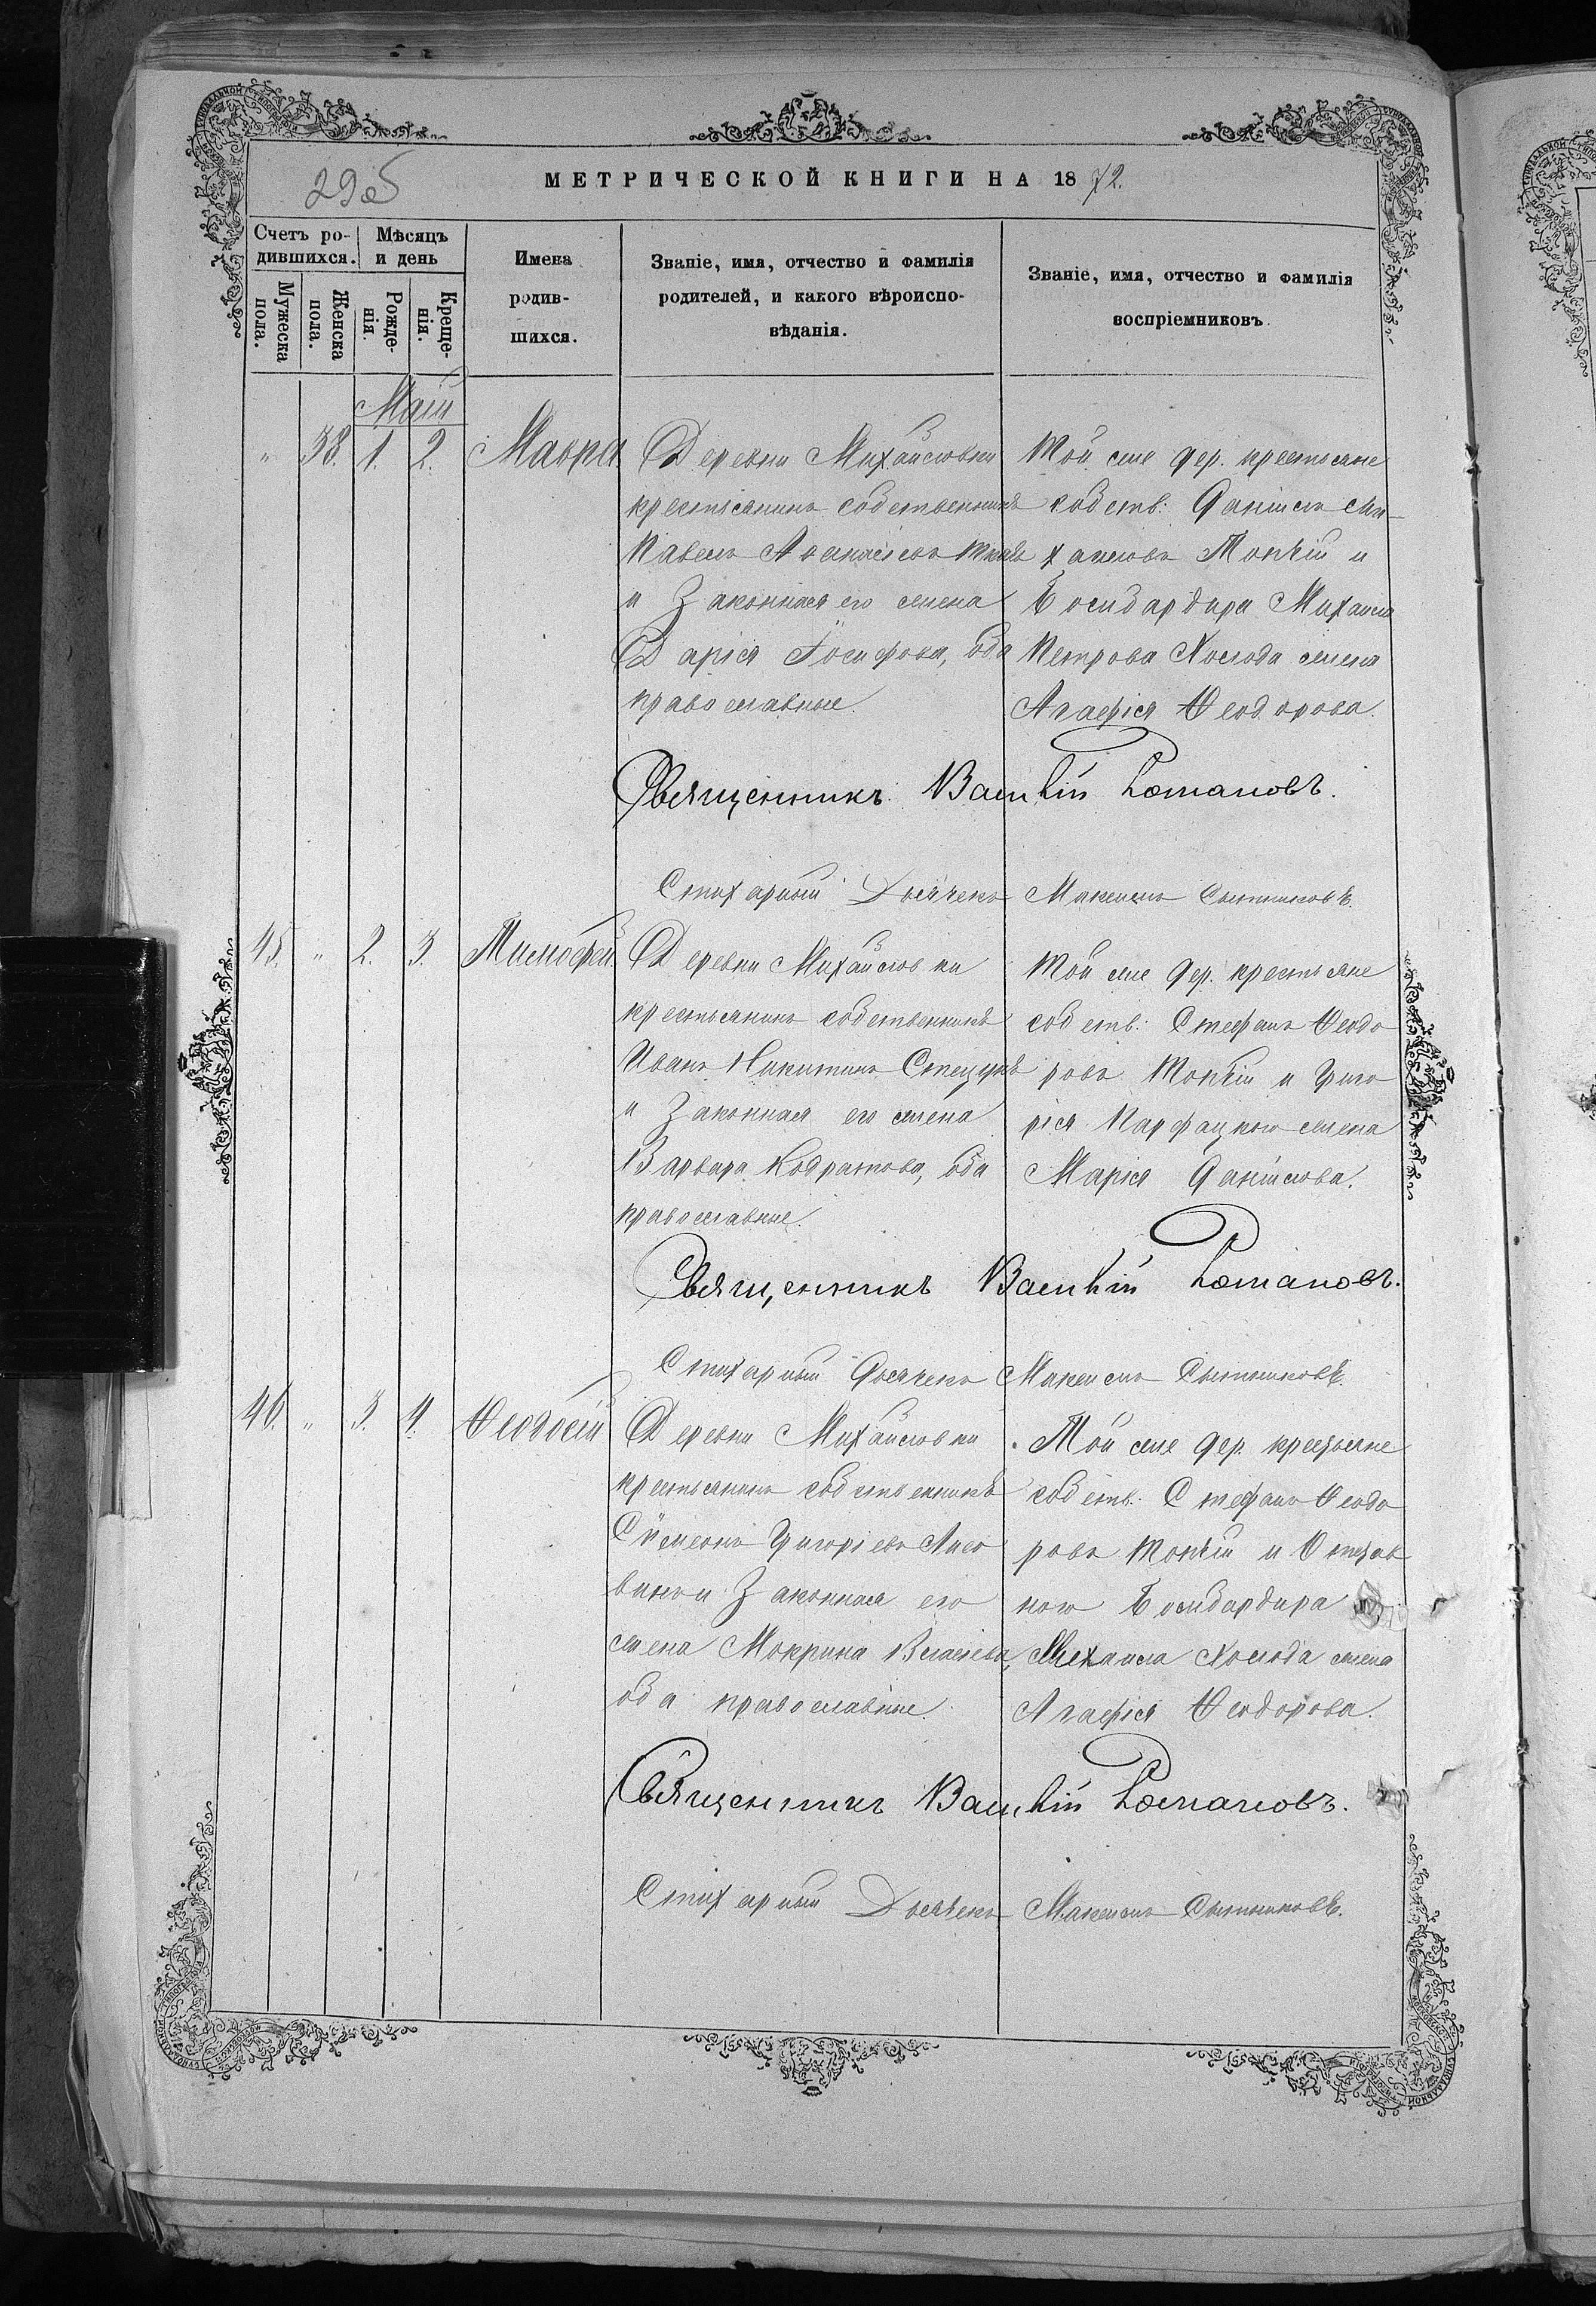 29об
МЕТРИЧЕСКОЙ КНИГИ НА 1872.
Счетъ ро-
дившихся.
Мѣсяцъ
и день
Мужеска
пола.
Женска
пола.
Рожде-
нія.
Креще-
нія.
Имена
родив-
шихся.
Званіе, имя, отчество и фамилія
родителей, и какого вѣроиспо-
вѣданія.
Званіе, имя, отчество и фамилія
воспріемниковъ.
Маій
" 38. 1. 2. Мавра.
Деревни Михайловки
крестьянинъ собственникъ
Павелъ Аѳанасіевъ
и законная его жена
Дарія Іосифова, оба
православные.
Той же дер. крестьяне
собств: Даніилъ Ми-
хаиловъ Топчій и
Бомбардира Михаила
Петрова Холода жена
Агафія Ѳеодорова.
Священникъ Василій Романовъ.
Стихарный Дьячекъ Максимъ Сытниковъ.
45. " 2. 3. Тимофей.
Деревни Михайловки
крестьянинъ собственникъ
Иванъ Никитинъ
и законная его жена
Варвара Кодратова, оба
православные.
Той же дер. крестьяне
собств: Стефанъ Ѳеодо
ровъ Топчій и Григо
рія жена
Марія Даніилова.
Священникъ Василій Романовъ.
Стихарный Дьячекъ Максимъ Сытниковъ.
46. " 3. 4. Ѳеодосій
Деревни Михайловки
крестьянинъ собственникъ
Сѷмеонъ Григоріевъ Лисо
и законная его
жена Мокрина Власіева,
оба православные.
Той же дер. крестьяне
собств: Стефанъ Ѳеодо
ровъ Топчій и Отстав
ного Бомбардира
Михаила Холода жена
Агафія Ѳеодорова.
Священникъ Василій Романовъ.
Стихарный Дьячекъ Максимъ Сытниковъ.